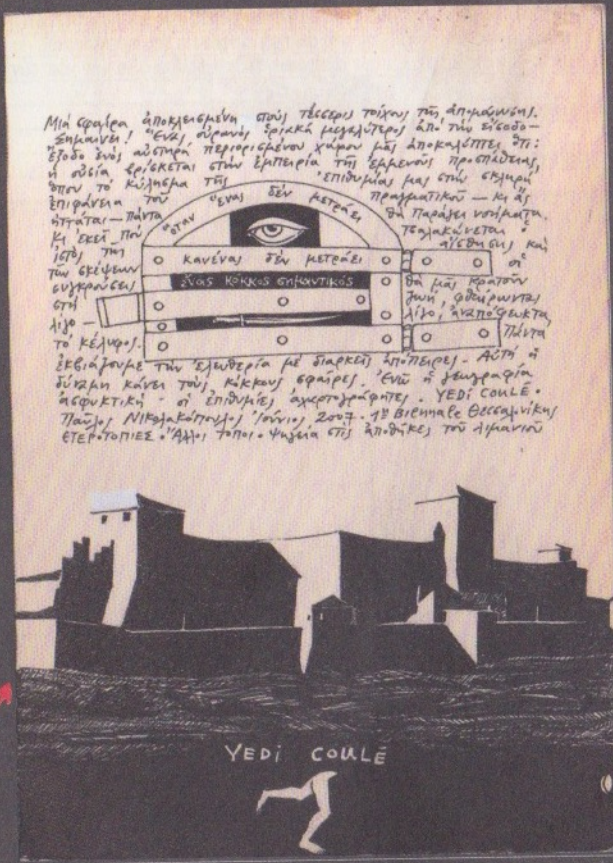 Μιά σφαίρα ἀποκλεισμένη στούς τέσσερις τοίχους τῆς ἀπομόνωσης.
Σημαίνει! Ἕνας οὐρανός ὁριακά μεγαλύτερος ἀπό τήν εἴσοδο-
ἔξοδο ἑνός αὐστηρά περιορισμένου χώρου μᾶς ἀποκαλύπτει ὅτι:
ἡ οὐσία βρίσκεται στήν ἐμπειρία τῆς ἔμμονης προσπάθειας,
ὅπου τό κύλισμα τῆς ἐπιθυμίας μας στήν σκληρή
ἐπιφάνεια τοῦ πραγματικοῦ - κι ἄς
ἡττᾶται - πάντα θά παράγει νοήματα.
Κι ἐκεῖ πού τσαλακώνεται ὁ
ἱστός τῆς αἴσθησης καί
τῶν σκέψεων οἱ
συγκρούσεις θά μᾶς κρατοῦν
στή ζωή, φθείροντας
λίγο - λίγο, ἀναπόφευκτα,
τό κέλυφος. Πάντα
ὅταν ἕνας δέν μετράει
κανένας δέν μετράει
ἕνας κόκκος σημαντικός
ἐκβιάζουμε τήν ἐλευθερία μέ διαρκεῖς ἀπόπειρες. Αὐτή ἡ
δύναμη κάνει τούς κόκκους σφαῖρες. Ἐνῶ ἡ γεωγραφία
ἀσφυκτική - οἱ ἐπιθυμίες ἀχαρτογράφητες. YEDI COULÉ.
Παῦλος Νικολακόπουλος Ἰούνιος 2007. 1η Biennale Θεσσαλονίκης
ΕΤΕΡΟΤΟΠΙΕΣ. Ἄλλοι τόποι. Ψυγεία στίς ἀποθῆκες τοῦ λιμανιοῦ
YEDI COULÉ